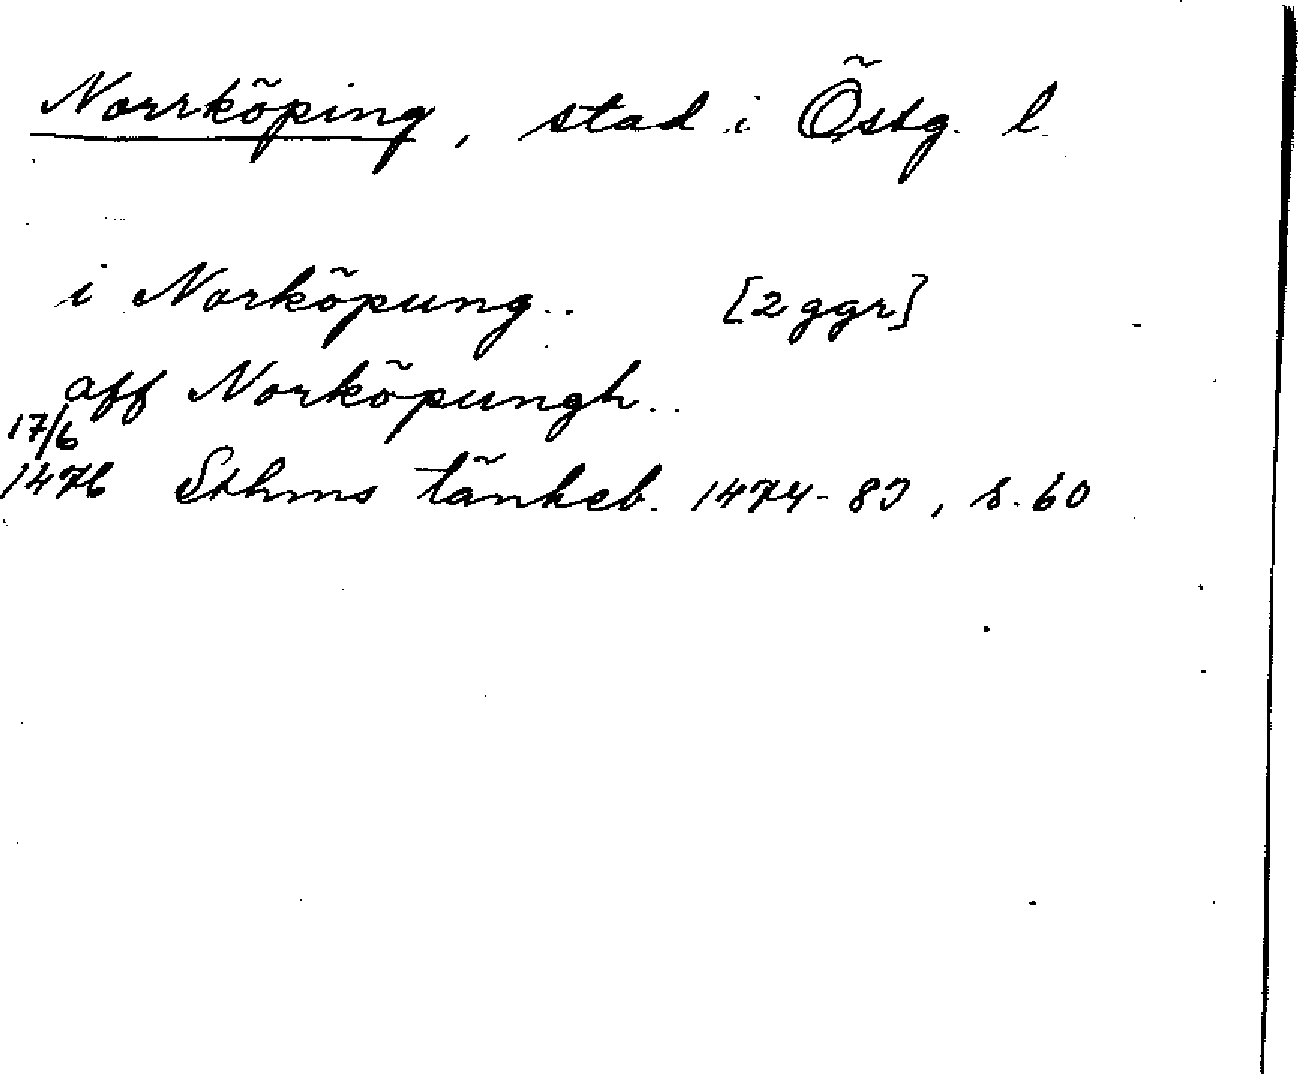 Norrköping, stad i Östg. l
i Norköpung.. [2 ggr]
aff Norköpungh..
17/6
1476 Sthms tänkeb. 1474-83, s. 60